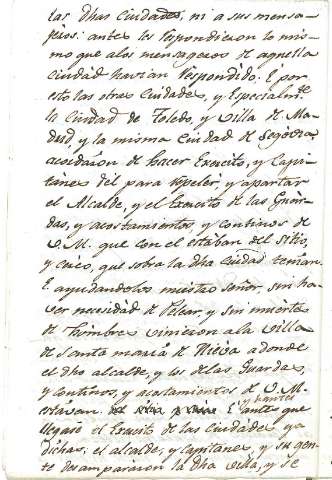 las dhas Ciudades, ni a sus mensa-
jeros: antes les respondieron lo mis-
mo que a los mensageros de aquella
Ciudad havian respondido: E por
esto las otras Ciudades, y Especialmte
la Ciudad de Toledo, y Villa de Ma-
drid, y la misma Ciudad de Segovia
acordaron de hacer Exercito, y Capi-
tanes del para repeler, y apartar
el Alcalde, y el Exercito de las Guar-
das, y acostamientos, y continos de
V. M. que con el estaban del sitio,
y cerco, que sobre la dha Ciudad tenian.
E ayudandolos nuestro Señor, sin ha-
ver necesidad de Pelear, y sin muerte
de hombres vinieron a la Villa
de Santa maria de Nieva adonde
el dho alcalde, y los de las Guardas,
y continos, y acostamientos de V. M.
estavan. E antes que
llegase el Exercito de las Ciudades ya
dichas, el alcalde, y Capitanes, y su gen-
te desampararon la dha Villa, y se